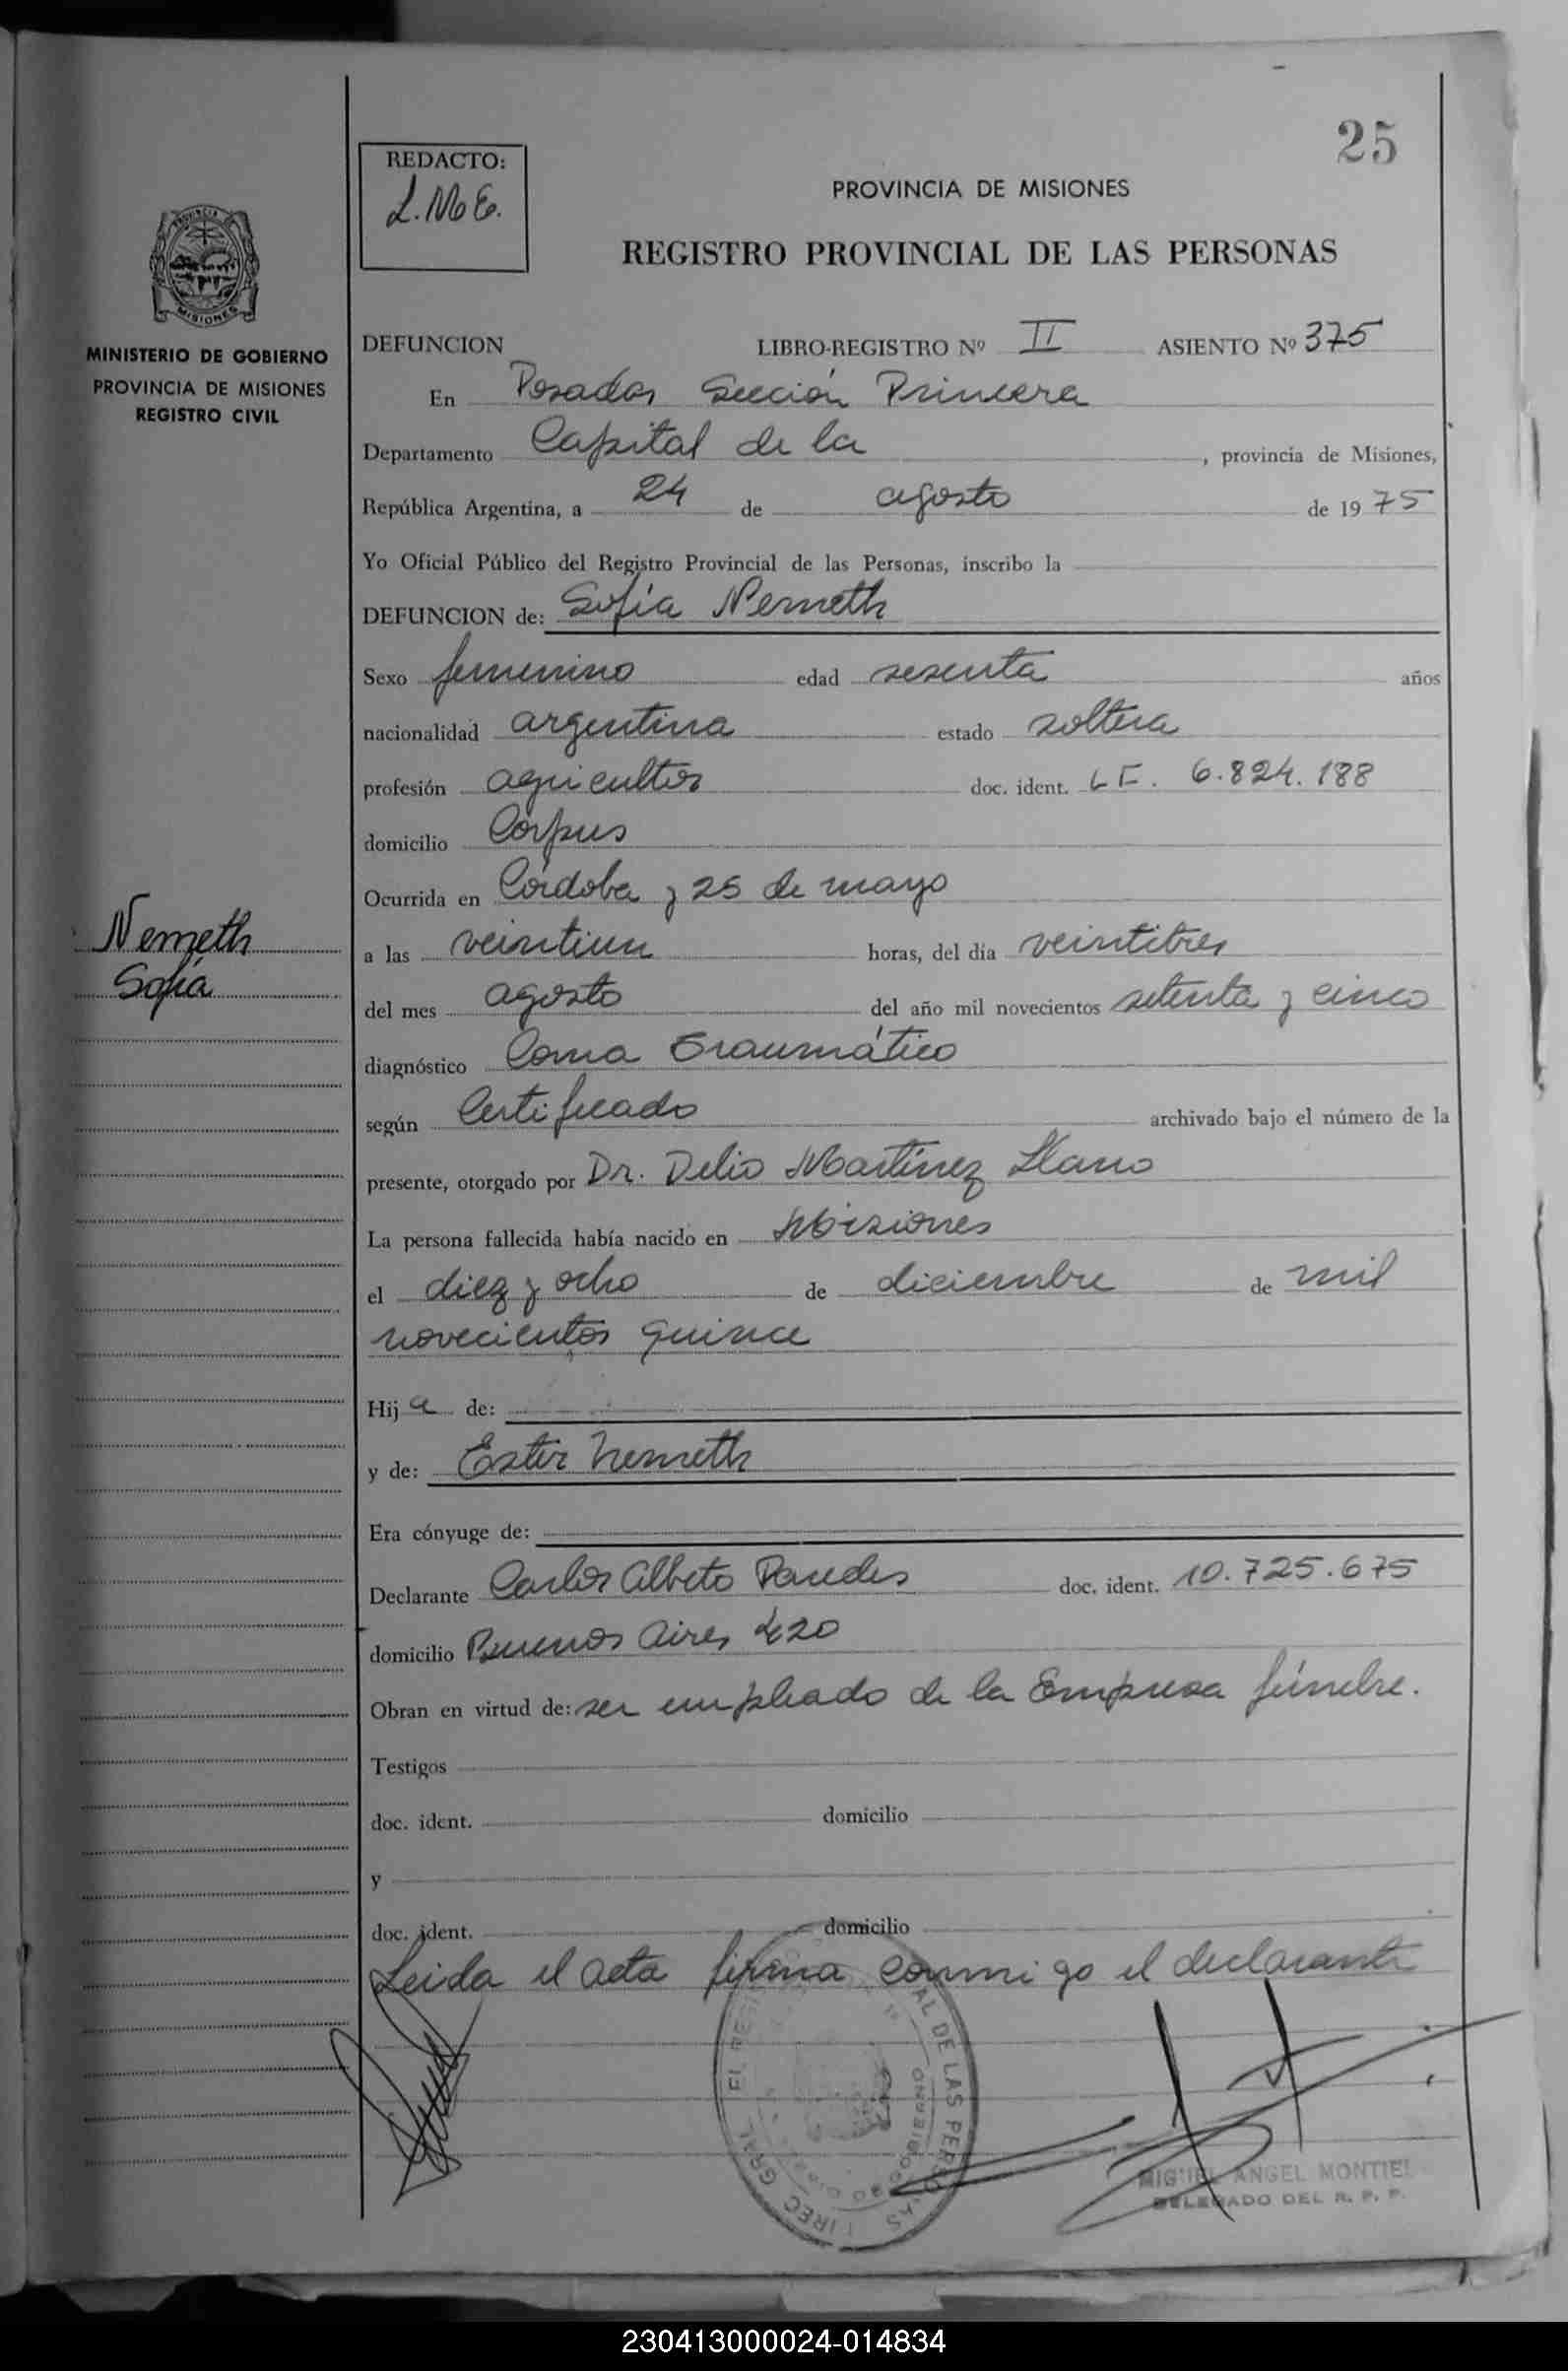 25
REDACTO:
L.M.E.
PROVINCIA DE MISIONES
REGISTRO PROVINCIAL DE LAS PERSONAS
PROVINCIA DE
MISIONES
MINISTERIO DE GOBIERNO
PROVINCIA DE MISIONES
REGISTRO CIVIL
DEFUNCION LIBRO-REGISTRO Nº II ASIENTO Nº 375
En Posadas Sección Primera
Departamento Capital de la , provincia de Misiones,
República Argentina, a 24 de agosto de 1975
Yo Oficial Público del Registro Provincial de las Personas, inscribo la
DEFUNCION de: Sofía Nemeth
Sexo femenino edad sesenta años
nacionalidad argentina estado soltera
profesión agricultor doc. ident. L E. 6.824.188
domicilio Corpus
Ocurrida en Córdoba y 25 de mayo
Nemeth
Sofía
a las veintiun horas, del día veintitres
del mes agosto del año mil novecientos setenta y cinco
diagnóstico Coma Traumático
según Certificado archivado bajo el número de la
presente, otorgado por Dr. Delio Martínez Llano
La persona fallecida había nacido en Misiones
el diez y ocho de diciembre de mil
novecientos quince
Hija de:
y de: Ester Nemeth
Era cónyuge de:
Declarante Carlos Alberto Paredes doc. ident. 10.725.675
domicilio Buenos Aires 420
Obran en virtud de: ser empleado de la Empresa fúnebre.
Testigos
doc. ident. domicilio
y
doc. ident. domicilio
Leida el acta firma conmigo el declarante
MIGUEL ANGEL MONTIEL
DELEGADO DEL R. P. P.
230413000024-014834